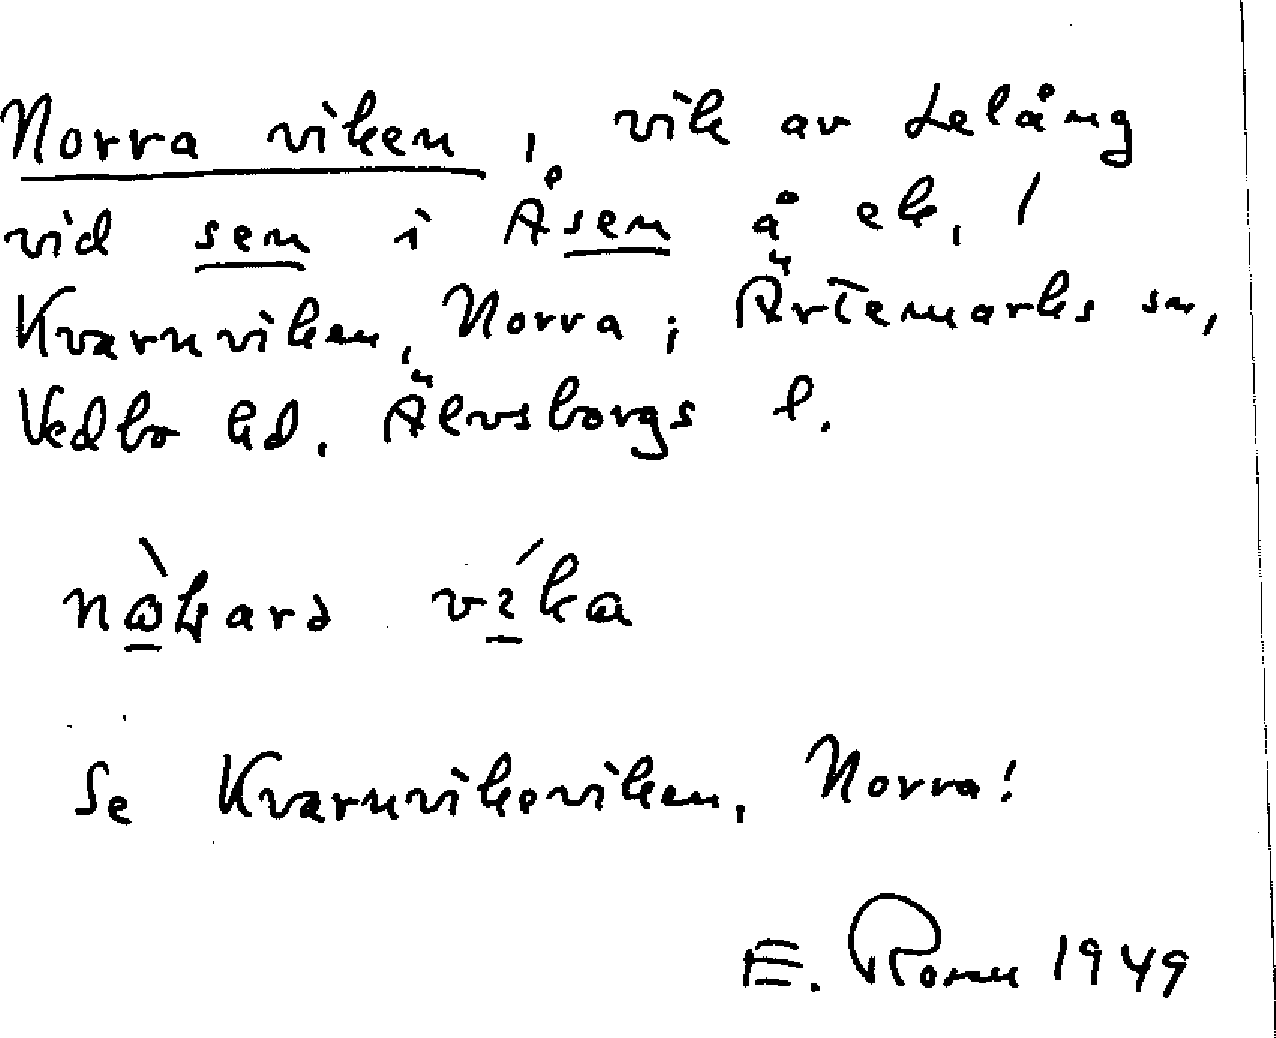 Norra viken, vik av Lelång
vid sen i Åsen å ek. /
Kvarnviken, Norra; Ärtemarks sn,
Vedbo hd. Älvsborgs l.
Se Kvarnvikeviken, Norra!
E. 1949